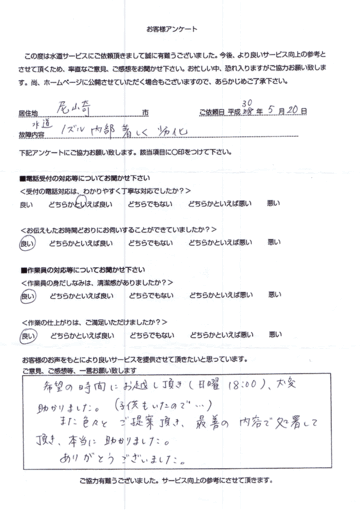 お客様アンケート
この度は水道サービスにご依頼頂きまして誠に有難うございました。今後、より良いサービス向上の参考と
させて頂くため、率直なご意見、ご感想をお聞かせ下さい。お忙しい中、恐れ入りますがご協力お願い致しま
す。尚、ホームページに公開させていただく場合もございますので、あらかじめご了承下さい。
居住地 尼ヶ崎 市 ご依頼日 平成 30 年 5 月 20 日
水道
故障内容 ノズル内部著しく劣化
下記アンケートにご協力お願い致します。該当項目に〇印をつけて下さい。
■電話受付の対応等についてお聞かせ下さい
<受付の電話対応は、わかりやすく丁寧な対応でしたか?>
良い どちらかといえば良い どちらでもない どちらかといえば悪い 悪い
<お伝えしたお時間どおりにお伺いすることができていましたか?>
良い どちらかといえば良い どちらでもない どちらかといえば悪い 悪い
■作業員の対応等についてお聞かせ下さい
<作業員の身だしなみは、清潔感がありましたか?>
良い どちらかといえば良い どちらでもない どちらかといえば悪い 悪い
<作業の仕上がりは、ご満足いただけましたか?>
良い どちらかといえば良い どちらでもない どちらかといえば悪い 悪い
お客様のお声をもとにより良いサービスを提供させて頂きたいと思っています。
ご意見、ご感想等、一言お願い致します
希望の時間にお越し頂き(日曜 18:00)、大変
助かりました。(子供もいたので…)
また色々とご提案頂き、最善の内容で処置して
頂き、本当に助かりました。
ありがとうございました。
ご協力有難うございました。サービス向上の参考にさせて頂きます。